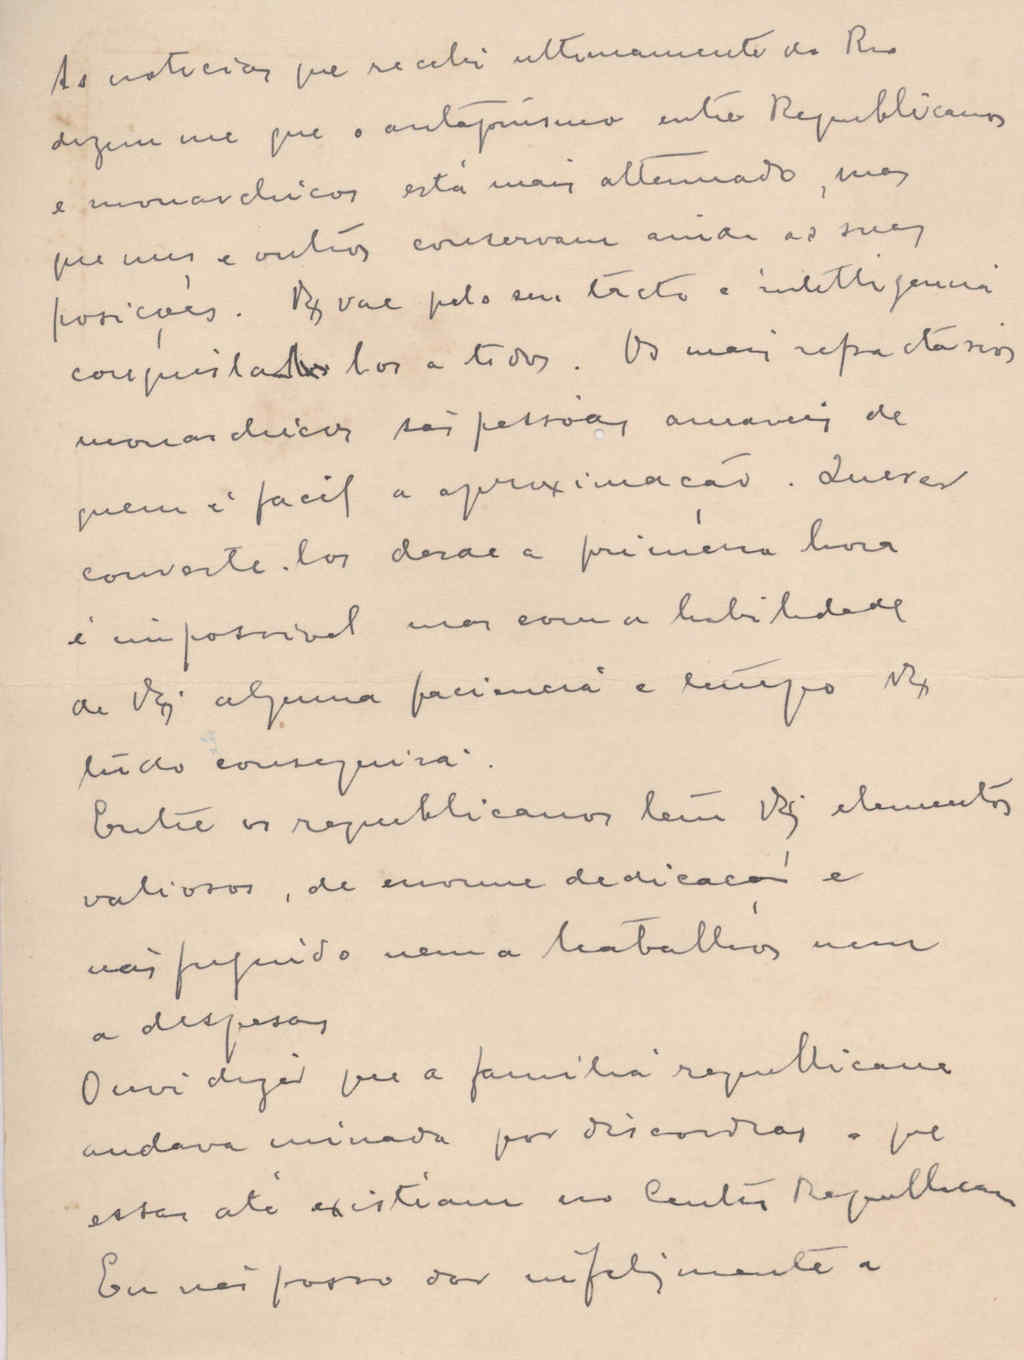 As noticias que recebi ultimamente do Rio
dizem me que o antagonismo entre Republicanos
e monarchicos está mais attenuado, mas
que uns e outros conservam ainda as suas
posições. V. Exª vae pelo seu tacto e intelligencia
conquista los a todos. Os mais refractarios
monarchicos são pessoas amaveis de
quem é facil a aproximação. Querer
converte-los desde a primeira hora
é impossivel mas com a habilidade
de V. Exª alguma paciencia e tempo V. Exª
tudo conseguirá.
Entre os republicanos tem V. Exª elementos
valiosos, de enorme dedicação e
não fugindo nem a trabalhos nem
a despesas
Ouvi dizer que a familia republicana
andava minada por discordias e que
essas até existiam no Centro Republicano
Eu não posso dar infelizmente a